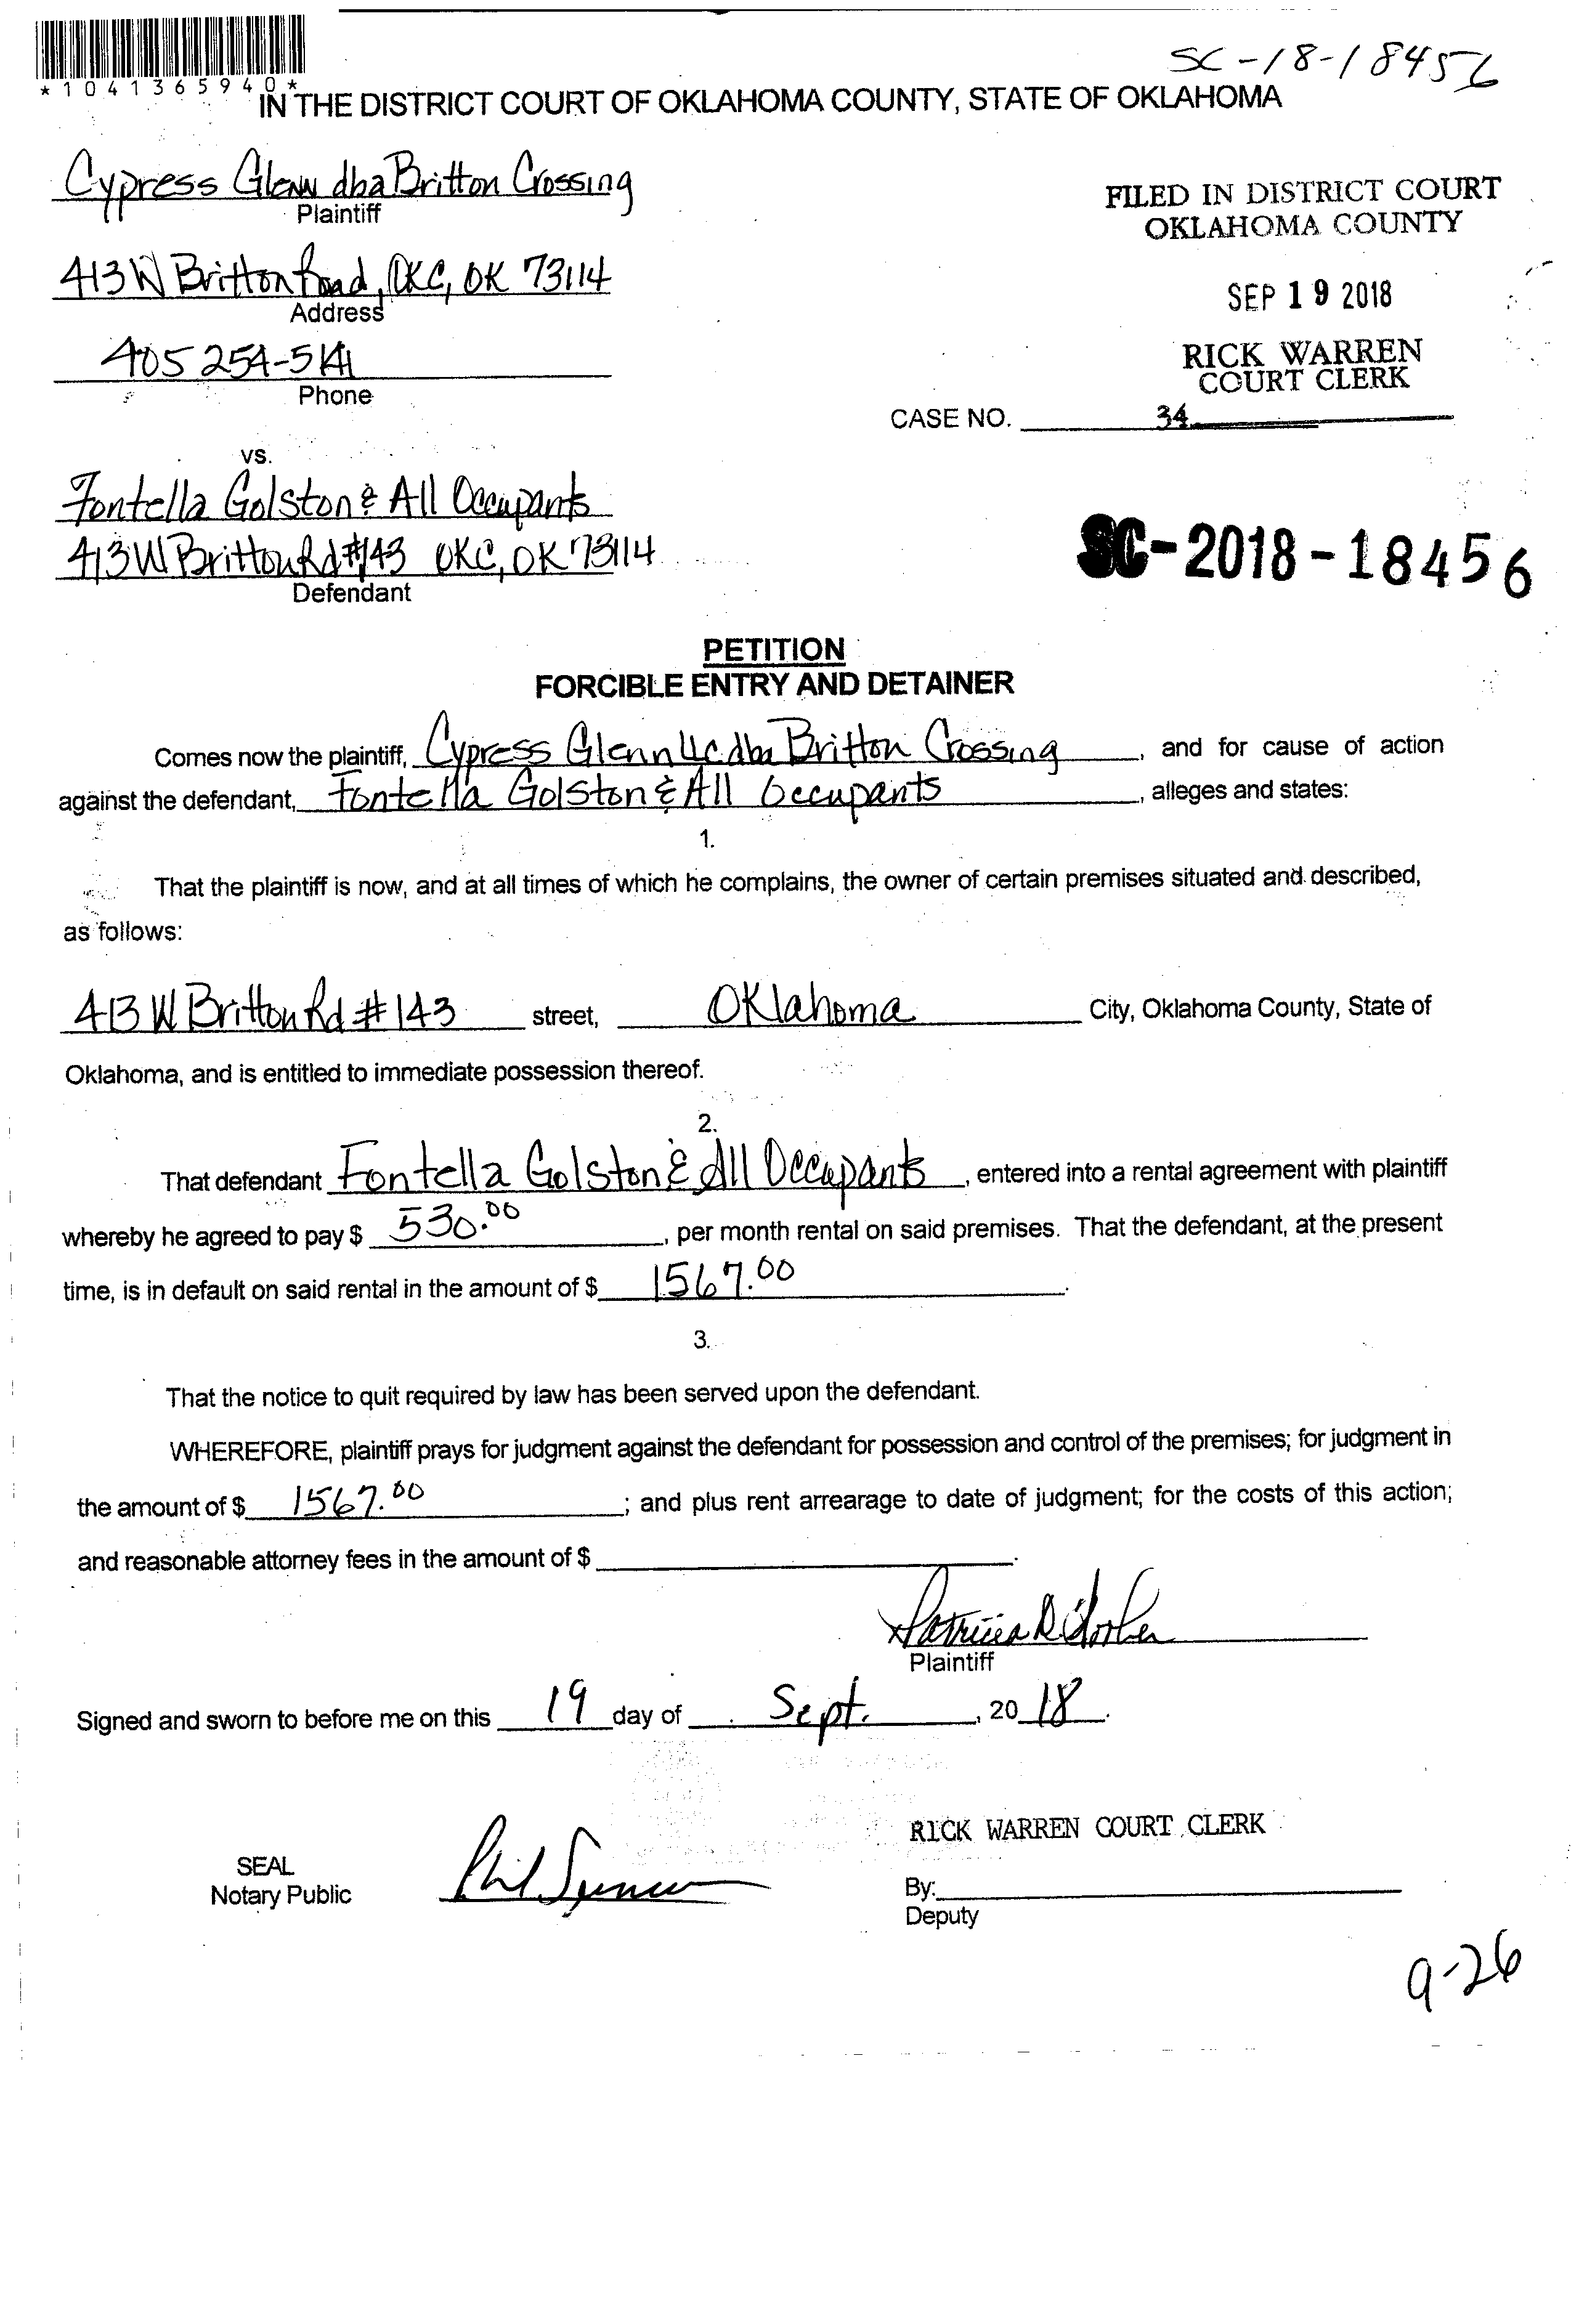 SC-18-18456
*1041365940*
IN THE DISTRICT COURT OF OKLAHOMA COUNTY, STATE OF OKLAHOMA
Cypress Glenn dba Britton Crossing
Plaintiff
FILED IN DISTRICT COURT
OKLAHOMA COUNTY
413 W Britton Road, OKC, OK 73114
Address
SEP 19 2018
405 254-5141
Phone
RICK WARREN
COURT CLERK
CASE NO. 34
vs.
Fontella Golston & All Occupants
413 W Britton Rd #143 OKC, OK 73114
Defendant
SC-2018-18456
PETITION
FORCIBLE ENTRY AND DETAINER
Comes now the plaintiff, Cypress Glenn LLC dba Britton Crossing, and for cause of action
against the defendant, Fontella Golston & All Occupants, alleges and states:
1.
That the plaintiff is now, and at all times of which he complains, the owner of certain premises situated and described,
as follows:
413 W Britton Rd #143 street, Oklahoma City, Oklahoma County, State of
Oklahoma, and is entitled to immediate possession thereof.
2.
That defendant Fontella Golston & All Occupants, entered into a rental agreement with plaintiff
whereby he agreed to pay $ 530.00, per month rental on said premises. That the defendant, at the present
time, is in default on said rental in the amount of $ 1567.00.
3.
That the notice to quit required by law has been served upon the defendant.
WHEREFORE, plaintiff prays for judgment against the defendant for possession and control of the premises; for judgment in
the amount of $ 1567.00; and plus rent arrearage to date of judgment; for the costs of this action;
and reasonable attorney fees in the amount of $ .
Patricia R
Plaintiff
Signed and sworn to before me on this 19 day of Sept., 2018.
RICK WARREN COURT CLERK
SEAL
Notary Public
Phil Spencer
By:
Deputy
9-26